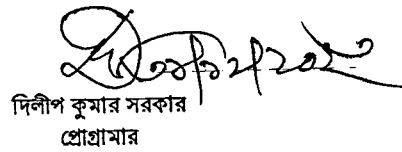 দিলীপ কুমার সরকার
প্রোগ্রামার